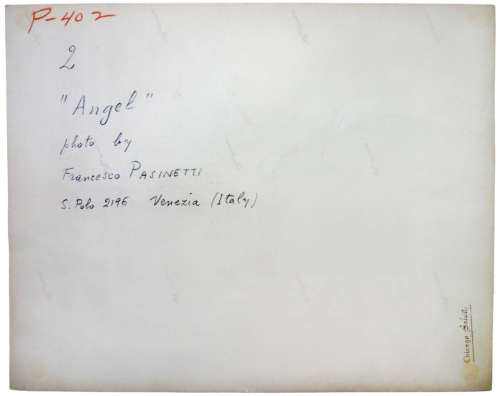 P-402
2
"Angel"
photo by
Francesco PASINETTI
S. Polo 2196 Venezia (Italy)
Chicago